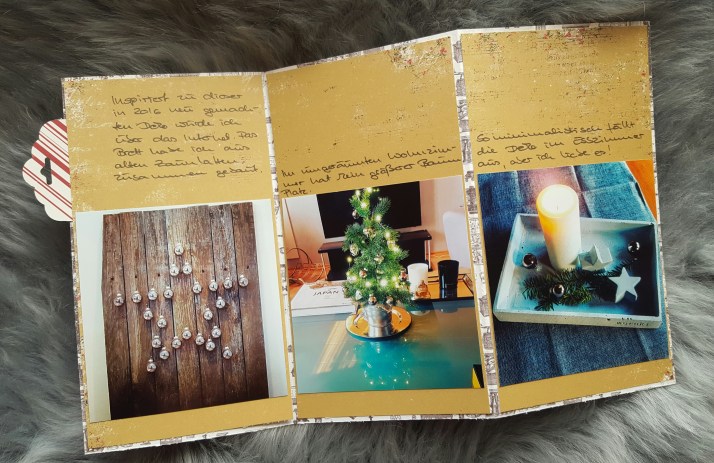 Inspiriert zu dieser
in 2016 neu gemach-
ten Deko wurde ich
über das Internet. Das
Brett habe ich aus
alten Zaunlatten
zusammen gebaut.
Im umgeräumten Wohnzim-
mer hat kein größerer Baum
Platz.
So minimalistisch fällt
die Deko im Esszimmer
aus, aber ich liebe es!
JAPAN